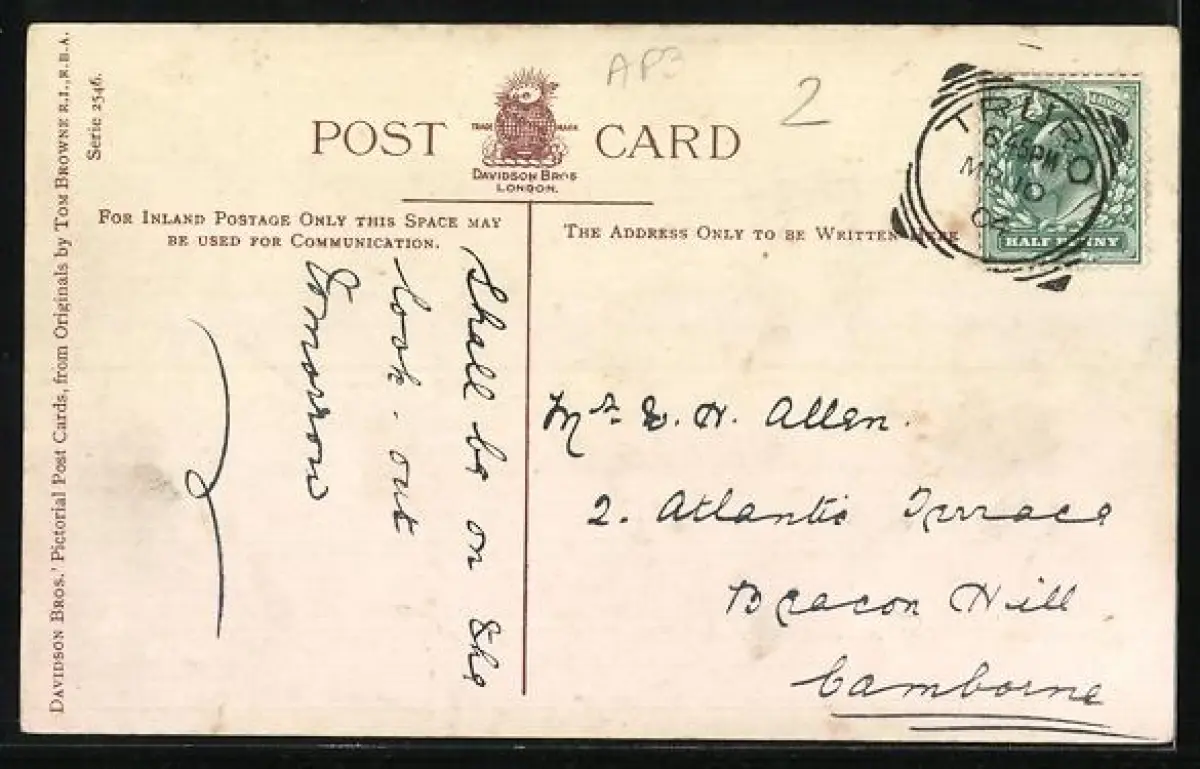 DAVIDSON BROS.' Pictorial Post Cards, from Originals by TOM BROWNE R.I., R.B.A.
Serie 2546.
AP3
2
POST CARD
TRADE MARK
DAVIDSON BROS
LONDON.
FOR INLAND POSTAGE ONLY THIS SPACE MAY
BE USED FOR COMMUNICATION.
THE ADDRESS ONLY TO BE WRITTEN HERE
TRURO
6.45PM
MR 10
HALF PENNY
Shall be on the
look-out
Tomorrow
Mr. E. H. Allen.
2. Atlantic Terrace
Beacon Hill
Camborne